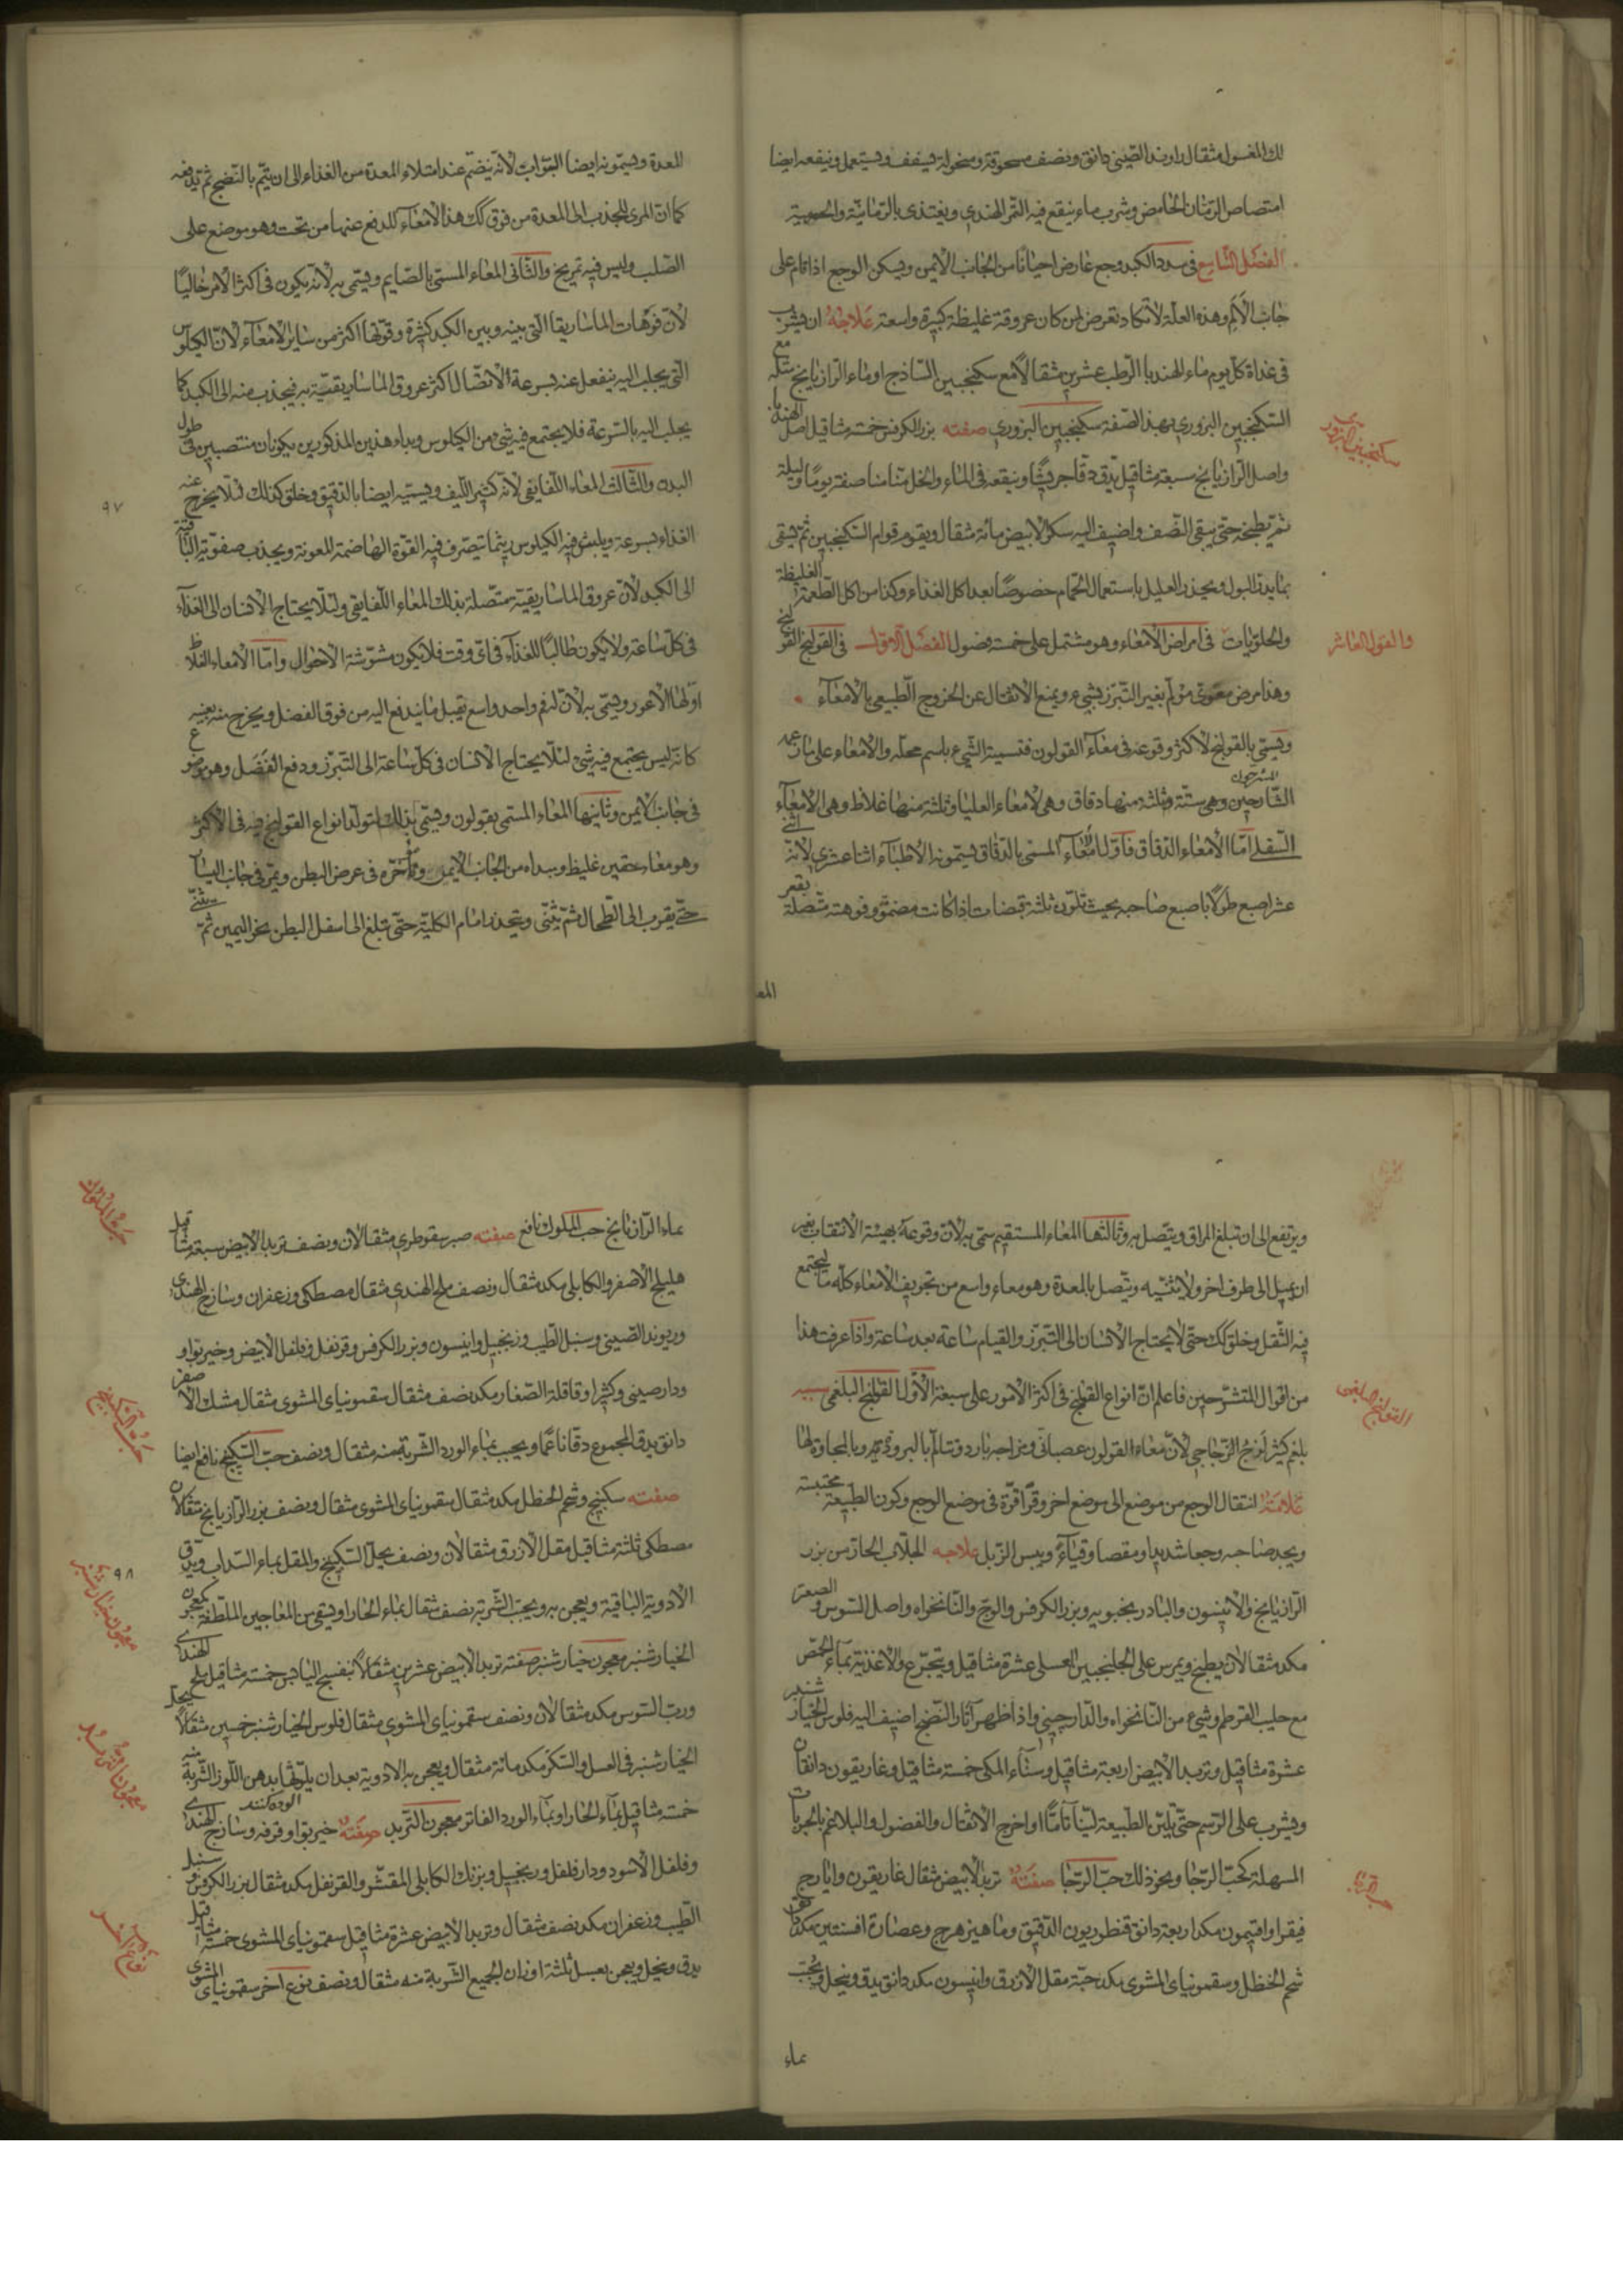 لك المغسول مثقال راوند الصيني دانق ونصف مسحوقة ومنخولة يسفف ويستعمل وينفعه ايضا
امتصاص الرمان الحامض وشرب ماء ينقع فيه التمر الهندي ويغتذى بالرمانية والحصرمية
الفصل التاسع فى سدد الكبد وجع عارض احيانا من الجانب الايمن ويسكن الوجع اذا قام على
جانب الالم وهذه العلة لا تكاد تعرض لمن كان عروقة غليظة كبيرة واسعة علاجه ان يشرب
فى غداة كل يوم ماء الهندبا الرطب عشرين مثقالا مع سكنجبين الساذج او ماء الرازيانج مع مثله
السكنجبين البزوري بهذ الصفة سكنجبين البزوري صفته بزر الكرفس خمسة مثاقيل اصل الهندبا
سكنجبين البزورى
واصل الرازيانج سبعة مثاقيل يدق دقا جريشا وينقعه فى الماء والخل مناصفة يوما وليلة
ثم يطبخه حتى يبقى النصف واضيف اليه سكر الابيض مائة مثقال ويقوم قوام السكنجبين ثم يسقى
بما يدر البول ويحذر العليل باستعمال الحمام خصوصا بعد اكل الغذاء وكذا من اكل الطعمة الغليظة
والقول العاشر
والحلويات فى امراض الامعاء وهو مشتمل على خمسة فصول الفصل الاول فى القولنج القولنج
وهذا مرض معوى مولم بغير التبرز بشيء ويمنع الاثفال عن الخروج الطبيعي بالامعاء
ويسمى بالقولنج لاكثر وقوعه فى معاء القولون فتسمية الشيء باسم محله والامعاء على ما زعمه
الشارحين المشرحون وهى ستة وثلثة منها دقاق وهى الامعاء العليا وثلثة منها غلاظ وهى الامعاء
السفلى اما الامعاء الدقاق فاول امعاء المسمى بالدقاق يسمونه الاطباء اثنا عشرى لانه اثنى
عشر اصبع طولا باصبع صاحبه بحيث تكون ثلثة قبضات اذا كانت مضمة وفوهته متصلة بقعر
المعد
المعدة ويسمونه ايضا البواب لانه ينضم عند امتلاء المعدة من الغذاء الى ان يتم بالنضج ثم يدفعه
كما ان المرى للجذب الى المعدة من فوق كك هذا الامعاء للدفع عنها من تحت وهو موضع على
الصلب وليس فيه تمريخ والثانى المعاء المسمى بالصايم ويسمى به لانه يكون فى اكثر الامر خاليا
لان فوهات الماساريقا التى بينه وبين الكبد كثيرة وقوتها اكثر من ساير الامعاء لان الكيلوس
التى يجلب اليه ينفعل عنه بسرعة الانضال اكثر عروق الماساريقية به فيجذب منه الى الكبد كما
يجلب اليه بالسرعة فلا يجتمع فيه شئ من الكيلوس وبداء هذين المذكورين يكونان منتصبين فى طول
البدن والثالث المعاء اللفايفى لانه كثير الليف ويسميه ايضا بالدقيق وخلق كذلك لئلا يخرج عنه
٩٧
الغذاء بسرعة ويلبث فيه الكيلوس ريثما تتصرف فيه القوة الهاضمة المعونة ويجذب صفوته الباقية
الى الكبد لان عروق الماساريقية متصلة بذلك المعاء اللفايفى ولئلا يحتاج الانسان الى الغذاء
فى كل ساعة ولا يكون طالبا للغذاء فى اى وقت فلا يكون مشوشة الاحوال واما الامعاء الغلاظ
اولها الاعور ويسمى به لان له فم واحد واسع يقبل ما يندفع اليه من فوق الفضل ويخرج منه بعينه
كانه ليس يجتمع فيه شئ لئلا يحتاج الانسان فى كل ساعة الى التبرز ودفع الفضل وهو موضوع
فى جانب الايمن وثانيها المعاء المسمى بقولون ويسمى بذلك لتولد انواع القولنج فيه فى الاكثر
وهو معاء صفيق غليظ ومبداه من الجانب الايمن واخره فى عرض البطن ويمر فى جانب اليسار
حتى يقرب الى الطحال ثم ينثنى وينحدر امام الكلية حتى تبلغ الى اسفل البطن نحو اليمين ثم ينثنى
ويرتفع الى ان تبلغ المراق ويتصل به وثالثها المعاء المستقيم سمى به لان وقوعه بهيئة الانتقاب بغير
ان يميل الى طرف اخر ولا ينثنيه ويتصل بالمعدة وهو معاء واسع من تجويف الامعاء كله ما ليجتمع
فيه الثقل وخلق كك حتى لا يحتاج الانسان الى التبرز والقيام ساعة بعد ساعة واذا عرفت هذا
من اقوال المتشرحين فاعلم ان انواع القولنج فى اكثر الامور على سبعة الاول القولنج البلغمى سببه
القولنج البلغمى
بلغم كثير لزج الزجاجي لان معاء القولون عصبانى ومزاجه بارد وتتالم بالبرودة وبالمجاورة لها
علامته انتقال الوجع من موضع الى موضع اخر وقراقرة فى موضع الوجع وكون الطبيعة محتبسة
ويجد صاحبه وجعا شديدا ومقصا وقياء ويبس الزبل علاجه الجلاب الحار من بزر
الرازيانج والانيسون والبادرنجبويه وبزر الكرفس والوج والنانخواه واصل السوس والصعتر
مكد مثقالان يطبخ ويمرس على الجلنجبين العسلى عشرة مثاقيل ويتجرع والاغذية بماء الحمص
مع حليب القرطم وشيء من النانخواه والدارچينى واذا ظهر اثار النضج اضيف اليه فلوس الخيار شنبر
عشرة مثاقيل وتربد الابيض اربعة مثاقيل وسناء المكى خمسة مثاقيل وغاريقون دانقان
ويشرب على الرسم حتى يلين الطبيعة لينا تاما او اخرج الاثقال والفضول والبلاغم بالحبوبات
المسهلة كحب الرجا ونحو ذلك حب الرجا صفته تربد الابيض مثقال غاريقون وايارج
حب الرجا
فيقرا وافتيمون مكد اربعة دانق قنطوريون الدقيق وماهيزهرج وعصارة افسنتين مكد دانق
شحم الحنظل وسقمونياى المشوى مكد حبة مقل الازرق وانيسون مكد دانق يدق وينخل ويحبب
بماء
بماء الرازيانج حب الملوك نافع صفته صبر سقوطرى مثقالان ونصف تربد الابيض سبعة مثاقيل
حب الملوك
هليلج الاصفر والكابلى مكد مثقال ونصف ملح الهندى مثقال مصطكى وزعفران وساذج الهندى
وريوند الصينى وسنبل الطيب وزنجبيل وانيسون وبزر الكرفس وقرنفل وفلفل الابيض وخيربوا و
ودارصينى وكثيرا وقاقلة الصغار مكد نصف مثقال سقمونياى المشوى مثقال مشك الاصفر
دانق يدق المجموع دقا ناعما ويحبب بماء الورد الشربة منه مثقال ونصف حب السكبينج نافع ايضا
حب السكبينج
صفته سكبينج وشحم الحنظل مكد مثقال سقمونياى المشوى مثقال ونصف بزر الرازيانج مثقالان
مصطكى ثلثة مثاقيل مقل الازرق مثقالان ونصف يحل السكبينج والمقل بماء السداب ويدق
٩٨
الادوية الباقية ويعجن به ويحبب الشربة نصف مثقال بماء الحار او يسقى من المعاجين الملطفة كمعجون
معجون خيار شنبر
الخيار شنبر معجون خيار شنبر صفته تربد الابيض عشرين مثقالا بنفسج اليابس خمسة مثاقيل ملح الهندى
ورب السوس مكد مثقالان ونصف سقمونياى المشوى مثقال فلوس الخيار شنبر خمسين مثقالا يحل
الخيار شنبر فى العسل والسكر مكد مائة مثقال ويعجن به الادوية بعد ان يلوثها بدهن اللوز الشربة منه
الوده كنند
خمسة مثاقيل بماء الحار او بماء الورد الفاتر معجون التربد صفته خيربوا وقرفه وساذج الهندى
معجون التربد
وفلفل الاسود ودار فلفل وزنجبيل وبرنك الكابلى المقشر والقرنفل مكد مثقال بزر الكرفس وسنبل
الطيب وزعفران مكد نصف مثقال وتربد الابيض عشرة مثاقيل سقمونياى المشوى خمسة مثاقيل
نوع اخر
يدق وينخل ويعجن بعسل ثلثة اوزان الجميع الشربة منه مثقال ونصف نوع اخر سقمونياى المشوى